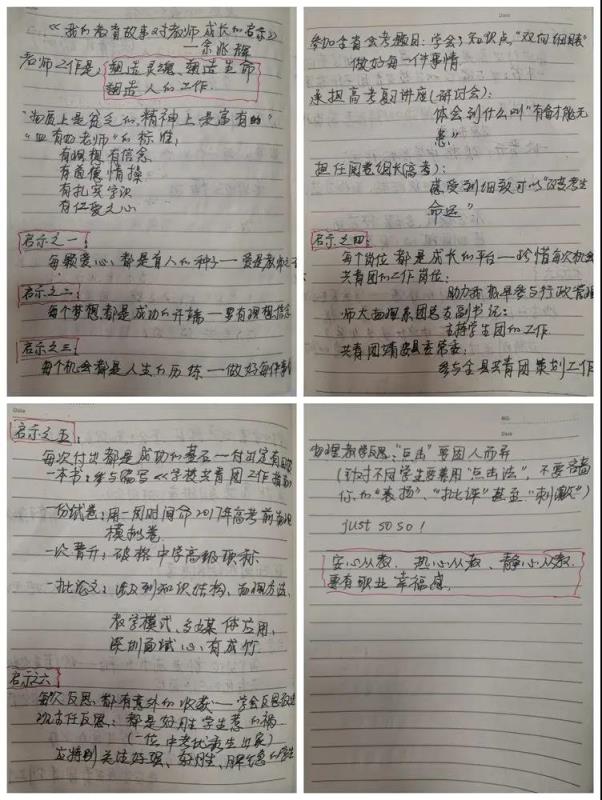 《我的教育故事对老师成长的启示》
——余兆
老师工作是：塑造灵魂、塑造生命
塑造人的工作.
"物质上是贫乏的,精神上是富有的".
"四有好老师"的标准：
有理想有信念
有道德情操
有扎实学识
有仁爱之心
启示之一：
每颗爱心都是育人的种子——爱是教师之
启示之二：
每个梦想都是成功的开端——要有理想信念
启示之三：
每个机会都是人生的历练——做好每件事
Date
参加全省会考题目：学会了知识点"双向细目表"
做好每一件事情
承担高考复习讲座(研讨会)：
体会到什么叫"有备才能无
患"
担任阅卷组长(高考)：
感受到细致可以"改变考生
命运"
启示之四：
每个岗位都是成长的平台——珍惜每次机会
共青团的工作岗位：
助力我极早参与行政管理
师大物理系团总支副书记：
支持学生团的工作.
共青团靖安县委常委：
参与全县共青团策划工作
Date
启示之五：
每次付出都是成功的基石——付出定有回报
一本书：参与编写《学校共青团工作指南》
一份试卷：用一周时间命2017年高考前物理
模拟卷
一次晋升：破格中学高级职称
一批论文：涉及到知识结构、物理方法、
教学模式、多媒体应用,
深圳面试心有成竹
启示之六
每次反思都有意外的收获——学会反思
班主任反思：都是好胜学生惹的祸
(一位中考优秀生
应特别关注好强、好胜、脾气急的学生
NO.
Date
物理教学反思："点击"要因人而异
(针对不同学生要善用"点击法",不要吝啬
你的"表扬"、"批评"甚至"刺激")
just so so!
安心从教、热心从教、静心从教.
要有职业幸福感.